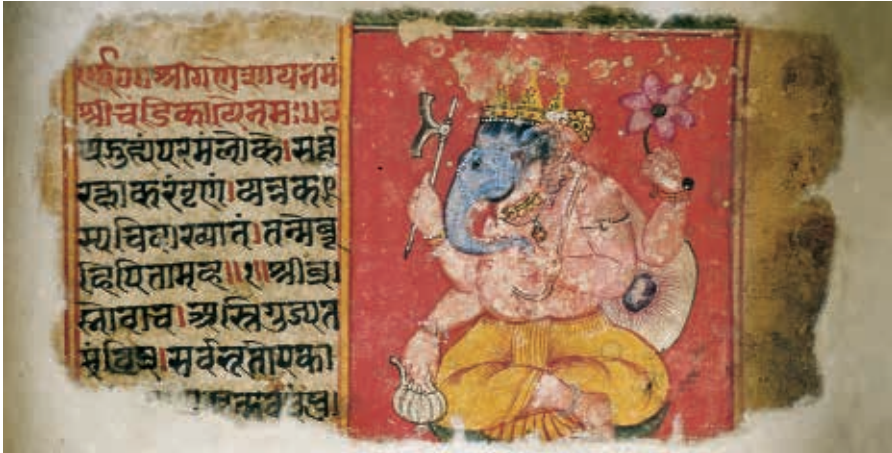 श्रीगणेशायनमः
श्रीचंडिकायैनमः॥
यद्गुह्यंपरमंलोके।सर्व
रक्षाकरंनृणां।यन्नक
स्यचिदाख्यातं।तन्मेब्रू
हिपितामह॥१॥श्रीब्र
ह्मोवाच।अस्तिगुह्यत
मंविप्र।सर्वभूतोपका